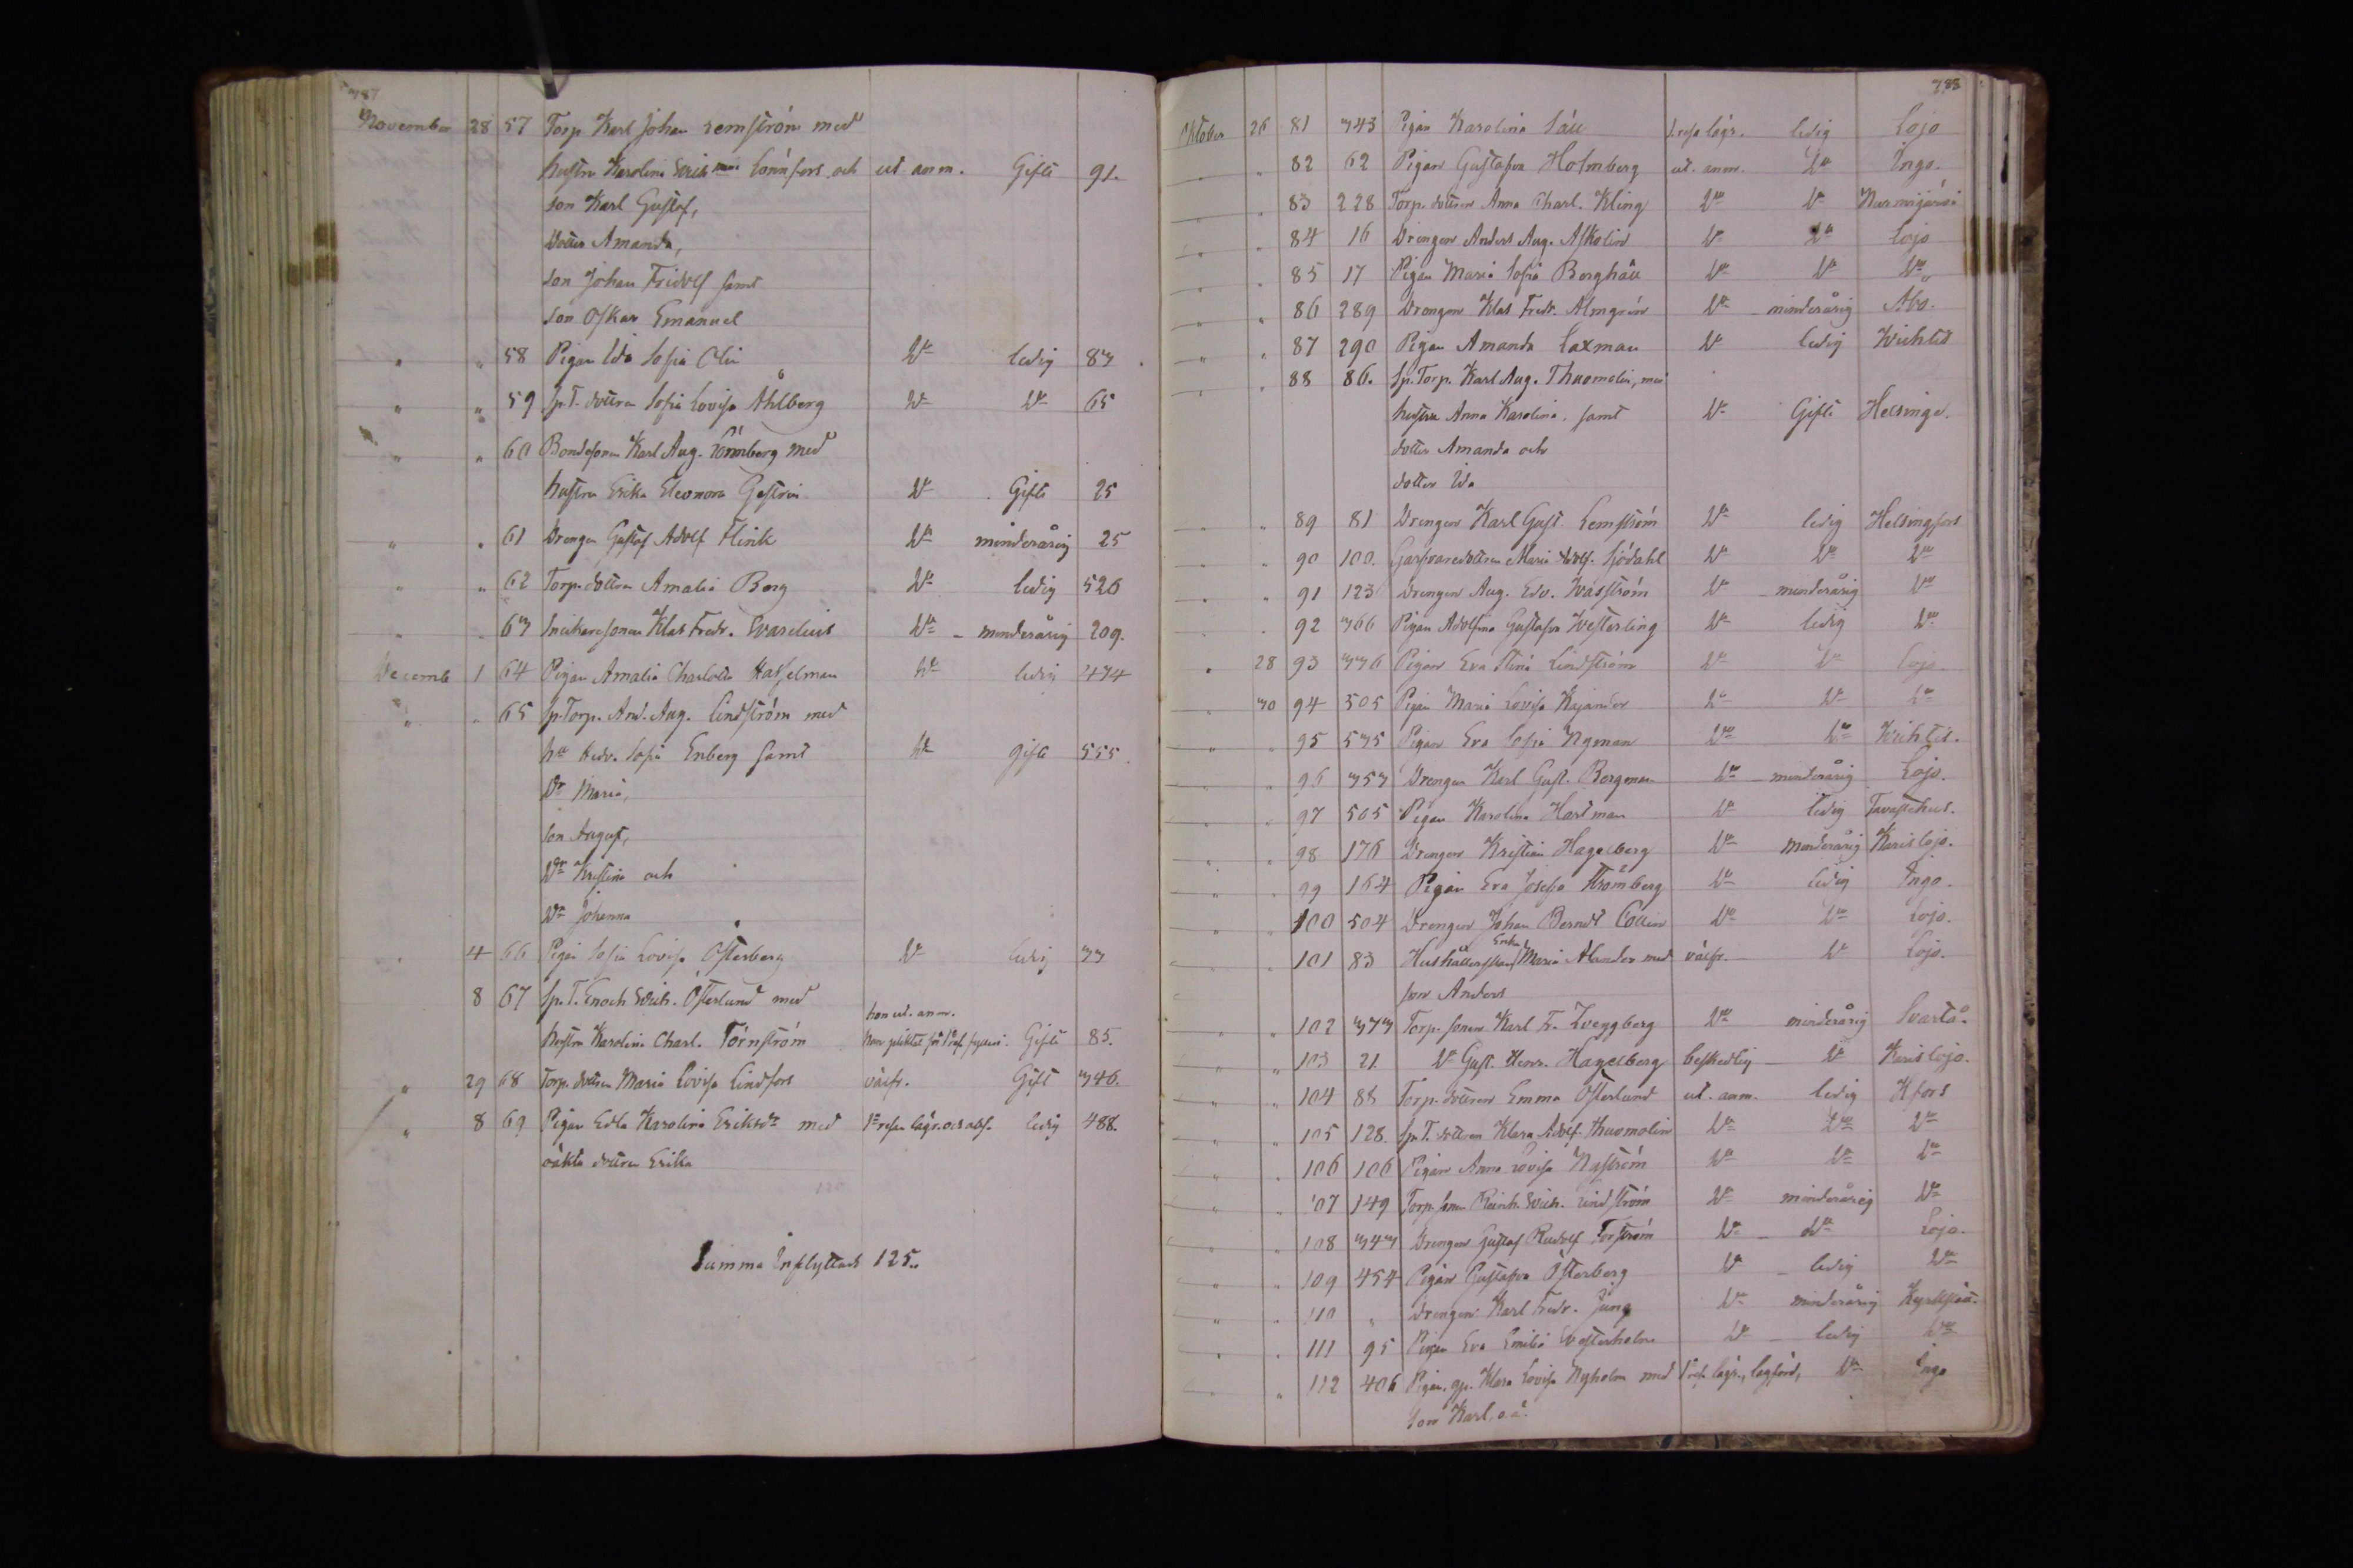 November 28 57 Torp. Karl Johan Lemström med
hustru Karolina Wilh Lönnfors och ut. anm. Gifte 91.
son Karl Gustaf,
Dotter Amanda,
son Johan Fridolf samt
son Oskar Emanuel
" " 58 Pigan Ida Sofia Olin Do ledig 87
" " 59 Sp.T. dottren Sofia Lovisa Åhlberg Do Do 65
" " 60 Bondesonen Karl Aug. Lönnberg med
hustru Erika Eleonora Gestrin Do Gifte 25
" " 61 Drengen Gustaf Adolf Flink Do minderårig 25
" " 62 Torp. dottren Amalia Berg Do ledig 526
" " 63 Snickaresonen Klas Fredr. Warelius Do minderårig 209.
Decemb 1 64 Pigan Amalia Charlotta Hasselman Do ledig 474
" " 65 Sp.Torp. And. Aug. Lindström med
hu Hedv. Sofia Enberg samt Do gifte 555
Dr Maria,
son August,
Dr Kristina och
Dr Johanna
4 66 Pigan Sofia Lovisa Österberg Do ledig 33
8 67 Sp.T. Enoch Wilh. Österlund med hon ut. anm.
hustru Karolina Charl. Törnström Gifte 85.
" 29 68 Torp. dottren Maria Lovisa Lindfors välfr. Gift 346.
" 8 69 Pigan Edla Karolina Eriksdr med ledig 488.
oäkta dottren Erika
Summa Inflyttade 125.
Oktober 26 81 343 Pigan Karolina Säll 1 resa lägr. ledig Lojo
" 82 62 Pigan Gustafva Holmberg ut. anm. Do Ingo.
" 83 228 Torp. dottren Anna Charl. Kling Do Do Nurmijärvi
" 84 16 Drengen Anders Aug. Askolin Do Do Lojo
" 85 17 Pigan Maria Sofia Berghäll Do Do Do
" " 86 289 Drengen Klas Fredr. Almgrén Do minderårig Åbo.
" " 87 290 Pigan Amanda Laxman Do ledig Wichtis
" 88 86. Sp. Torp. Karl Aug. Thuomolin, med
hustru Anna Karolina, samt Do Gifte Helsinge.
dotter Amanda och
dotter Ida
" " 89 81 Drengen Karl Gust. Lemström Do ledig Helsingfors
" " 90 100. Garfvaredottren Maria Adolf. Sjödahl Do Do Do
" " 91 123 Drengen Aug. Edv. Wasström Do minderårig Do
" 92 366 Pigan Adolfina Gustafva Westerling Do ledig Do
" 28 93 336 Pigan Eva Stina Lindström Do Do Lojo
" 30 94 505 Pigan Maria Lovisa Kajander Do Do Do
" " 95 535 Pigan Eva Sofia Nyman Do Do Wichtis.
" " 96 353 Drengen Karl Gust. Bergman Do minderårig Lojo.
" " 97 505 Pigan Karolina Hartman Do ledig Tavastehus.
" " 98 176 Drengen Kristian Hagelberg Do minderårig Karislojo.
" " 99 164 Pigan Eva Josefa Strömberg Do ledig Ingo.
" " 100 504 Drengen Johan Berndt Collin Do Do Lojo.
" " 101 83 Hushållerskan Erika Maria Alander med välfr. Do Lojo.
son Anders
" " 102 373 Torp. sonen Karl F. Zweygberg Do minderårig Svartå.
" " 103 21. Do Gust. Henr. Hagelberg beskedlig Do Karislojo.
" " 104 88 Torp. dottren Emma Österlund ut. anm. ledig Hfors
" " 105 128. Sp.T. dottren Klara Adolf. Thuomolin Do Do Do
" " 106 106 Pigan Anna Lovisa Nyström Do Do Do
" " 107 149 Torp. sonen Reinh. Wilh. Lindström Do minderårig Do
" " 108 343 Drengen Gustaf Rudolf Forström Do Do Lojo.
" " 109 454 Pigan Gustafva Österberg Do ledig Do
" " 110 " Drengen Karl Fredr. Jung Do minderårig Kyrkslätt.
" " 111 95 Pigan Eva Emilia Westerholm Do ledig Do
" " 112 406 Pigan, qp. Klara Lovisa Nyholm med 1 resa lägr., lagförd, Do Ingo
son Karl, o.ä.